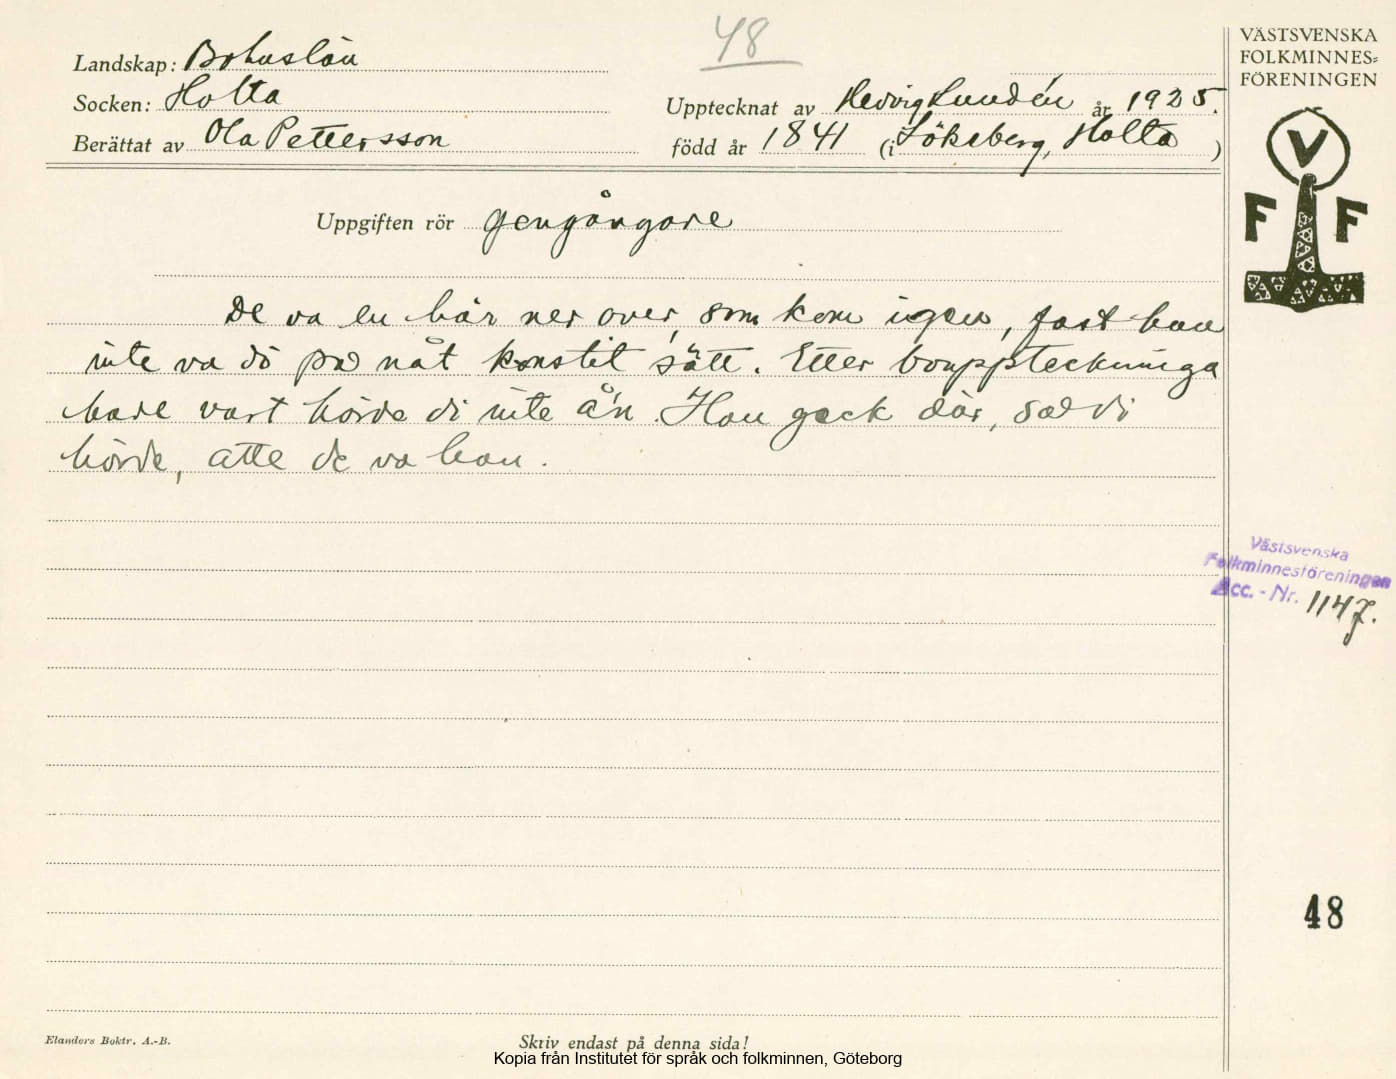 48
VÄSTSVENSKA
FOLKMINNES=
FÖRENINGEN
Landskap: Bohuslän
Socken: Holta
Upptecknat av Hedvig Lundén år 1925.
Berättat av Ola Pettersson
född år 1841 (i Sökeberg, Holta)
V
F F
Uppgiften rör gengångare
De va en här ner över, som kom igen, fast han
inte va dö på nåt konstit sätt. Etter bouppteckninga
bare vart hörde di inte å'n. Han geck där, sae di
hörde, atte de va han.
Västsvenska
Folkminnesföreningen
Acc. - Nr. 1147.
48
Elanders Boktr. A.-B.
Skriv endast på denna sida!
Kopia från Institutet för språk och folkminnen, Göteborg